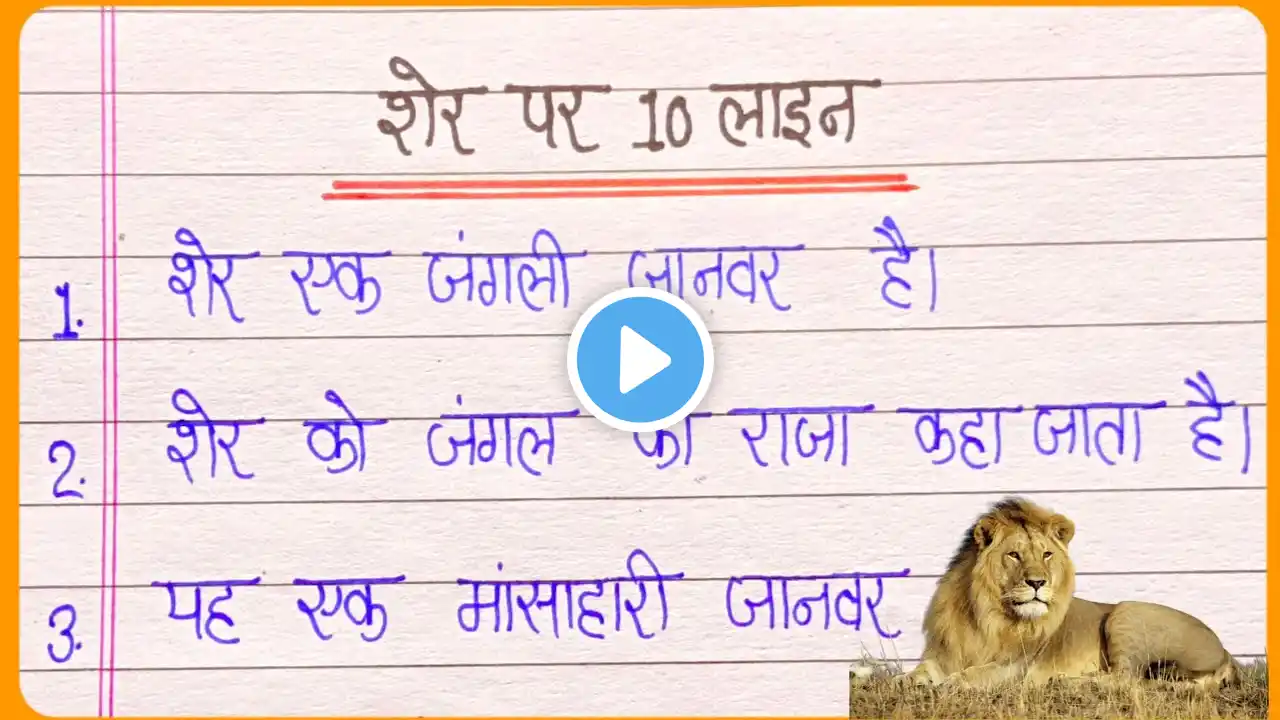 शेर पर 10 लाइन
1. शेर एक जंगली जानवर है।
2. शेर को जंगल का राजा कहा जाता है।
3. यह एक मांसाहारी जानवर